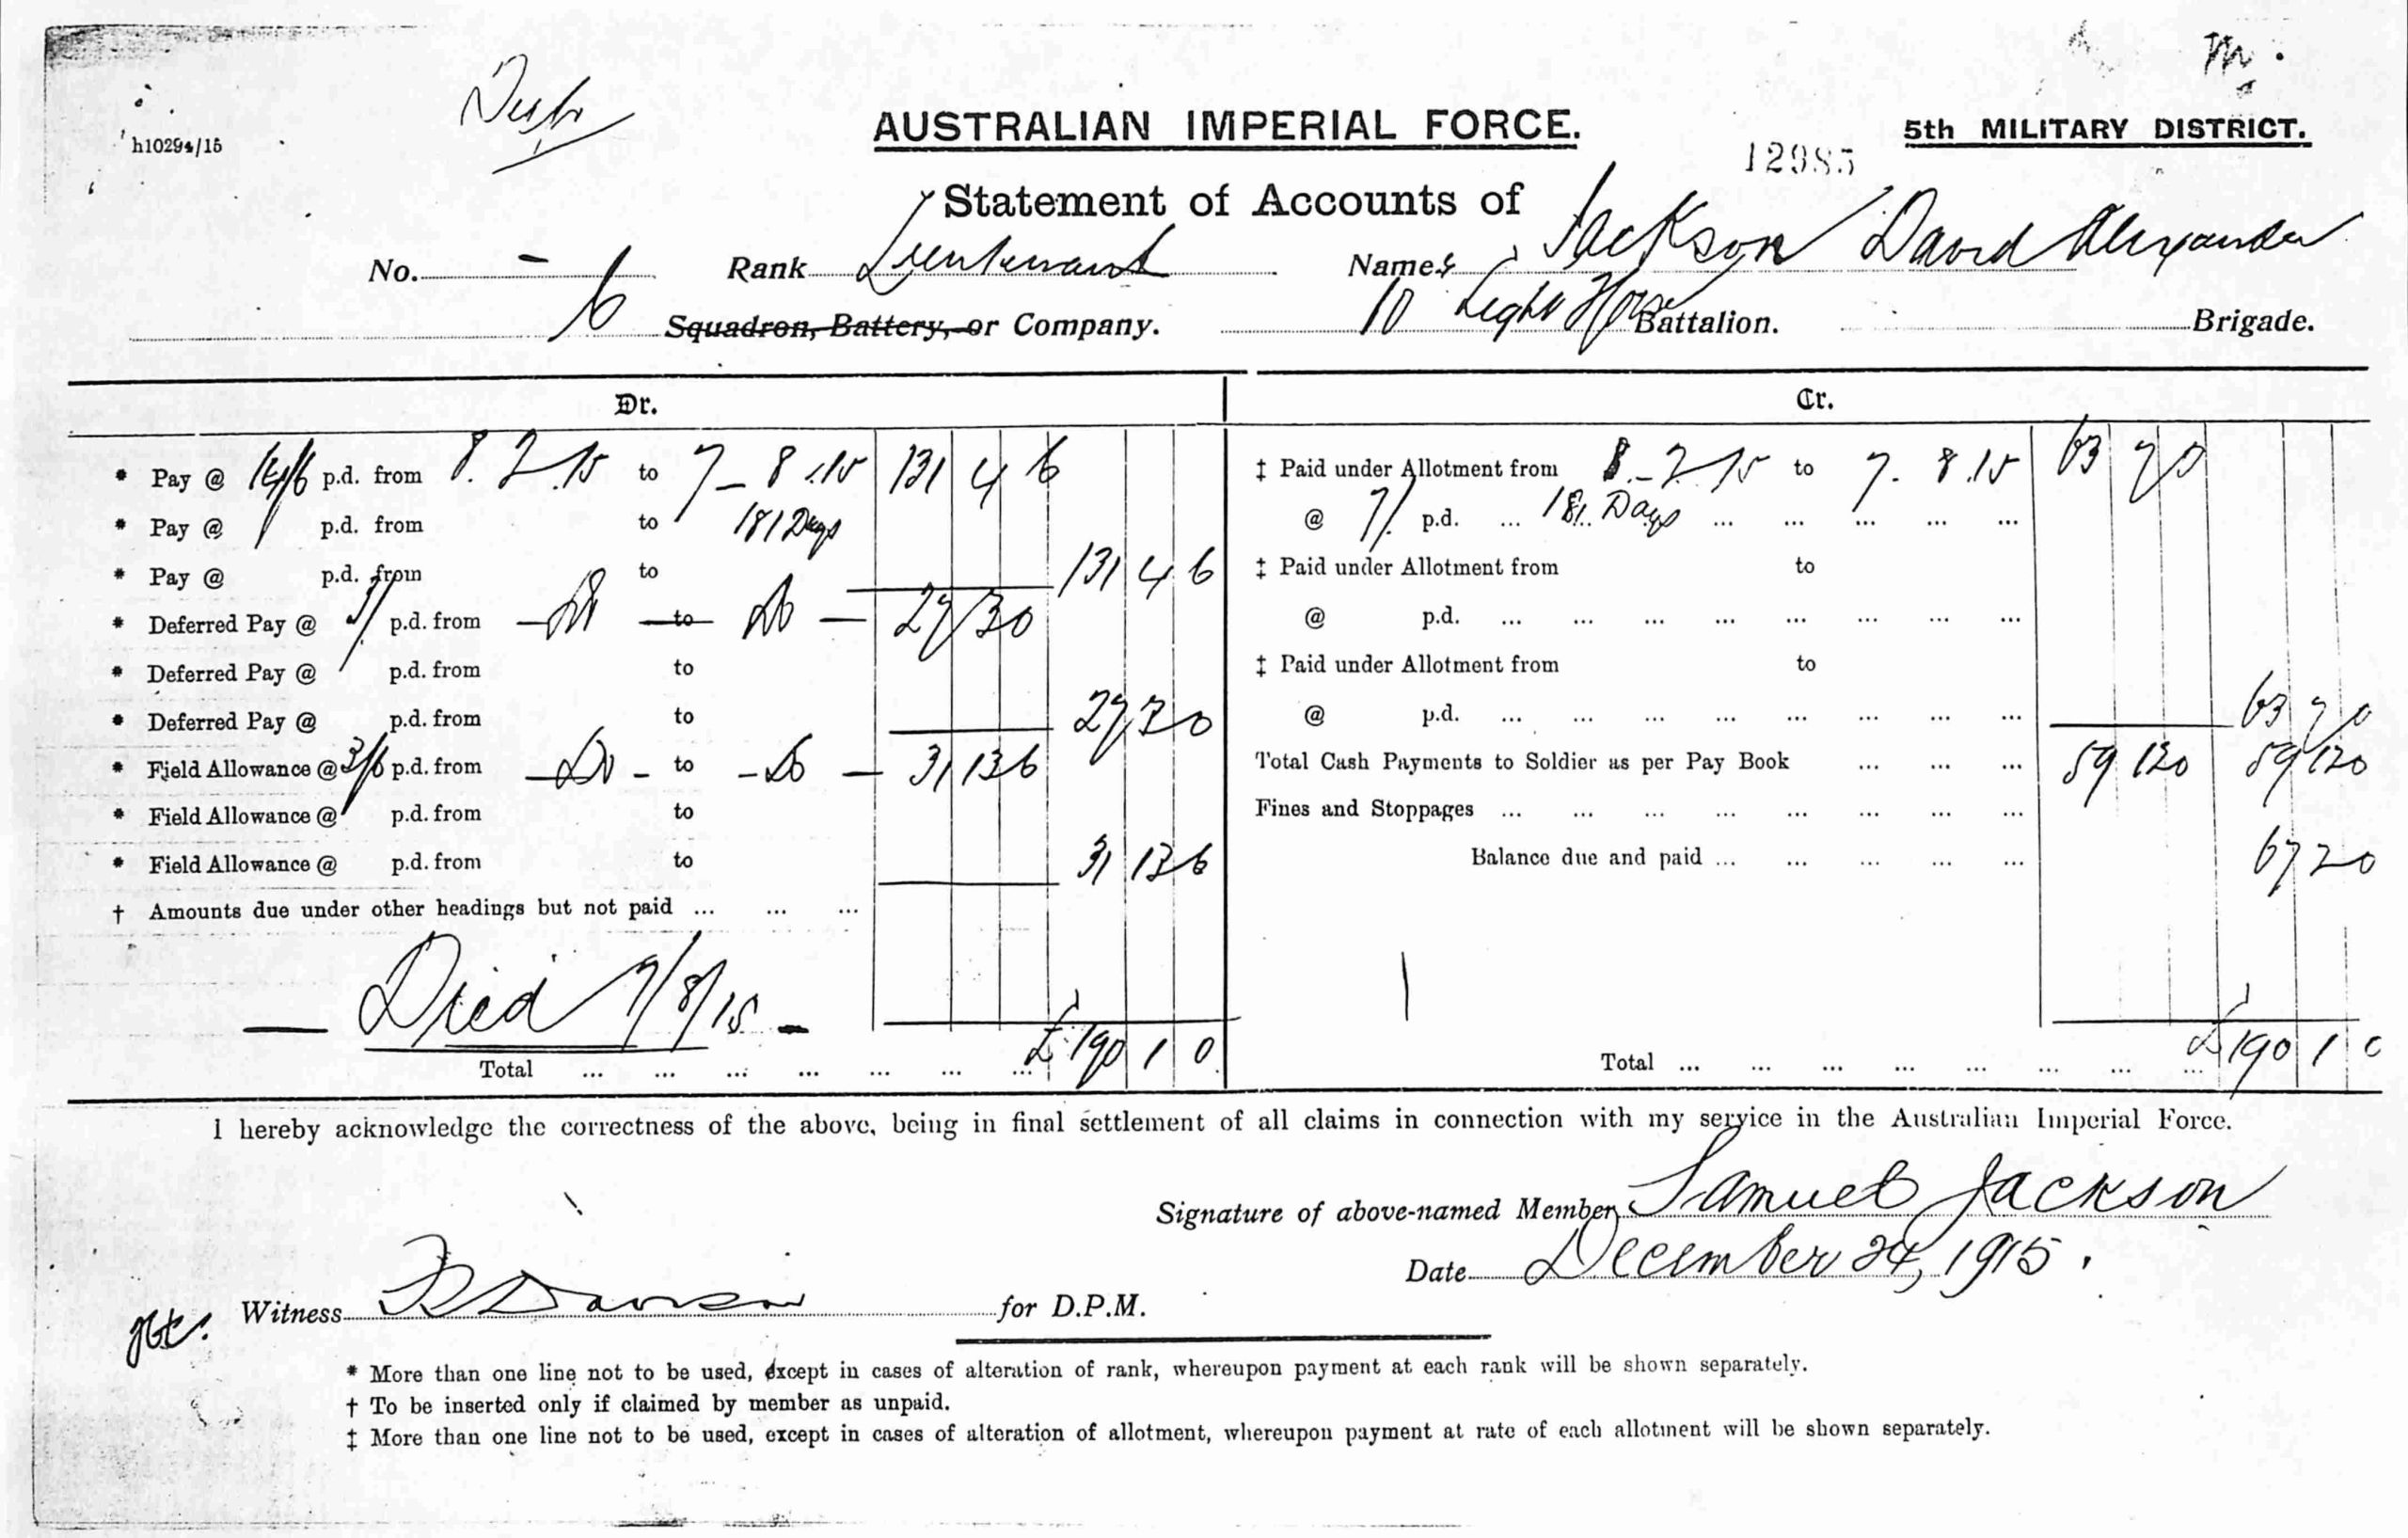 h10294/15
AUSTRALIAN IMPERIAL FORCE.
5th MILITARY DISTRICT.
12985
Statement of Accounts of
No. - Rank Lieutenant Name Jackson David Alexander
Squadron, Battery, or Company. 10 Light Horse Battalion. Brigade.
Dr. Cr.
* Pay @ 14/6 p.d. from 8.2.15 to 7-8.15 131 4 6
* Pay @ p.d. from to 181 Days
* Pay @ p.d. from to 131 4 6
* Deferred Pay @ 3/ p.d. from - Do - to - Do - 27 3 0
* Deferred Pay @ p.d. from to
* Deferred Pay @ p.d. from to 27 3 0
* Field Allowance @ 3/6 p.d. from - Do - to - Do - 31 13 6
* Field Allowance @ p.d. from to
* Field Allowance @ p.d. from to 31 13 6
† Amounts due under other headings but not paid ... ... ...
- Died 7/8/15 -
Total ... ... ... ... ... ... ... £190 1 0
‡ Paid under Allotment from 8.-2.15 to 7.8.15 63 7 0
@ 7/ p.d. ... 181 Days ... ... ... ... ...
‡ Paid under Allotment from to
@ p.d. ... ... ... ... ... ... ... ...
‡ Paid under Allotment from to
@ p.d. ... ... ... ... ... ... ... ... 63 7 0
Total Cash Payments to Soldier as per Pay Book ... ... ... 59 12 0 59 12 0
Fines and Stoppages ... ... ... ... ... ... ... ...
Balance due and paid ... ... ... ... ... 67 2 0
Total ... ... ... ... ... ... ... ... £190 1 0
I hereby acknowledge the correctness of the above, being in final settlement of all claims in connection with my service in the Australian Imperial Force.
Signature of above-named Member Samuel Jackson
Date December 24, 1915.
Witness for D.P.M.
* More than one line not to be used, except in cases of alteration of rank, whereupon payment at each rank will be shown separately.
† To be inserted only if claimed by member as unpaid.
‡ More than one line not to be used, except in cases of alteration of allotment, whereupon payment at rate of each allotment will be shown separately.